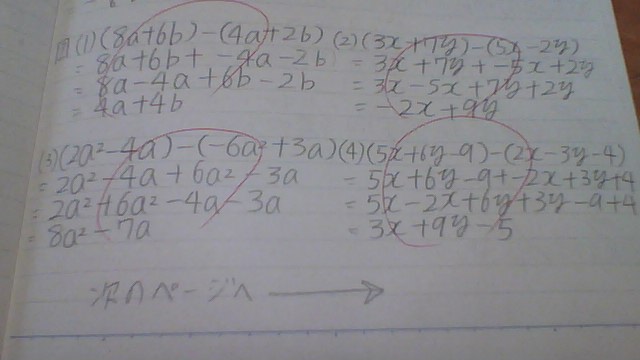 (1)(8a+6b)-(4a+2b)
=8a+6b+ -4a-2b
=8a-4a+6b-2b
=4a+4b
(2)(3x+7y)-(5x-2y)
=3x+7y+-5x+2y
=3x-5x+7y+2y
=-2x+9y
(3)(2a²-4a)-(-6a²+3a)
=2a²-4a+6a²-3a
=2a²+6a²-4a-3a
=8a²-7a
(4)(5x+6y-9)-(2x-3y-4)
=5x+6y-9+-2x+3y+4
=5x-2x+6y+3y-9+4
=3x+9y-5
次のページへ →